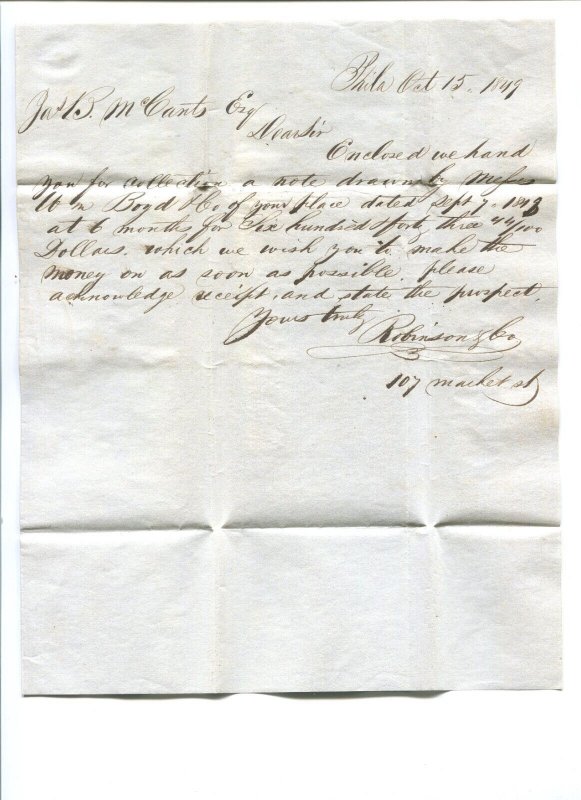 Phila Oct 15. 1849
Jas B. McCants Esq
Dear Sir
Enclosed we hand
you for collection a note drawn by Mess
Wm Boyd & Co of your place dated Sept 7. 184
at 6 months for Six hundred forty three 44/100
Dollars. which we wish you to make the
money on as soon as possible. please
acknowledge receipt, and state the prospect.
Yours truly
Robinson & Co
107 market st